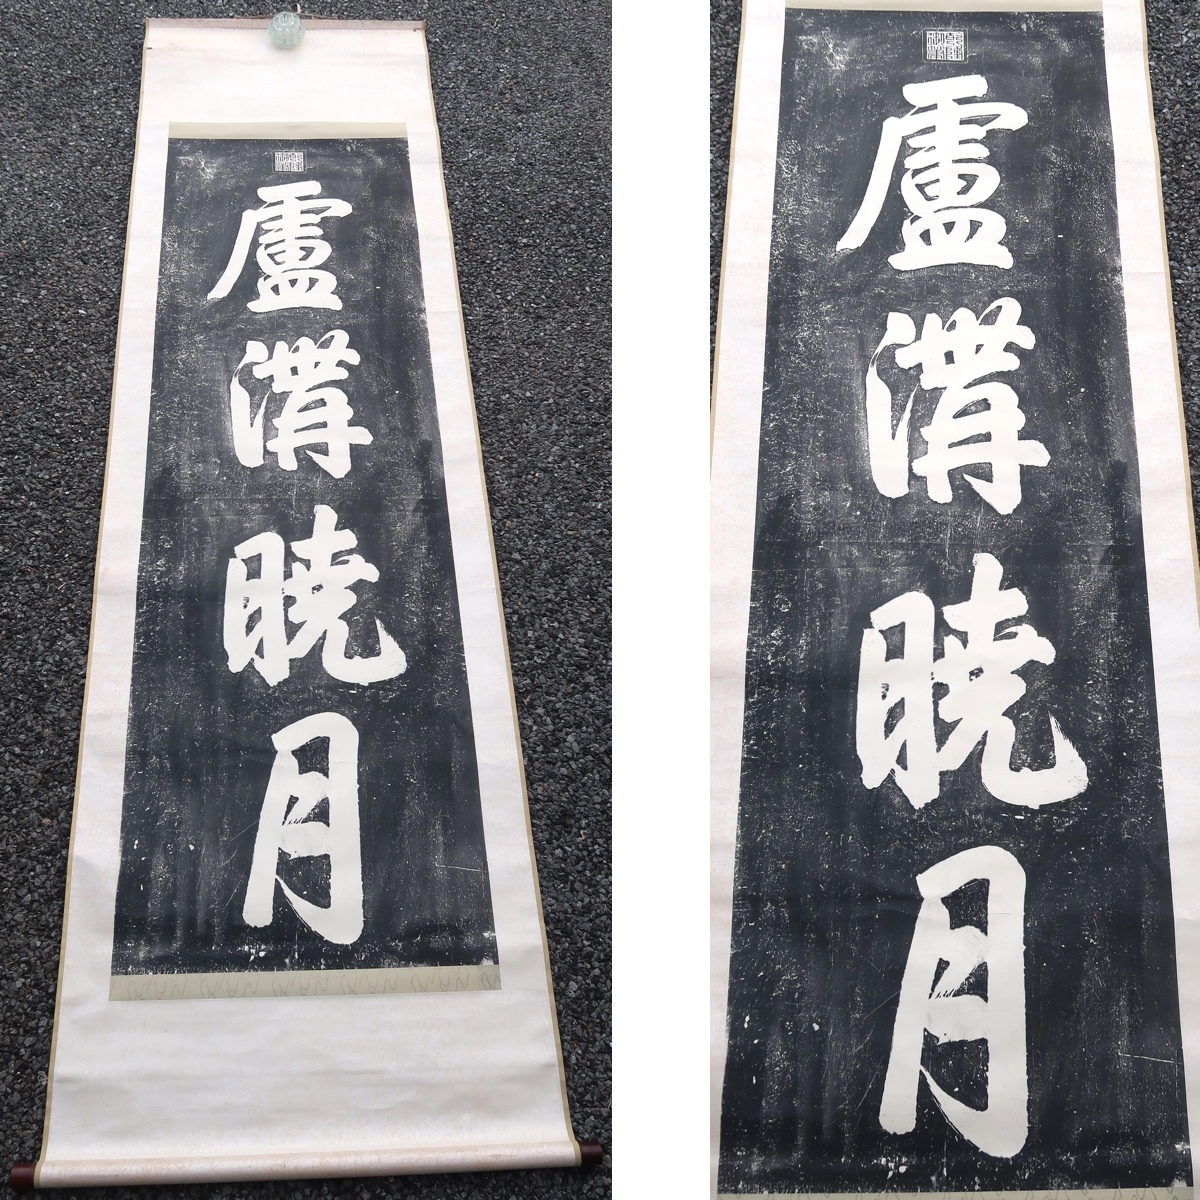 盧溝曉月
盧溝曉月